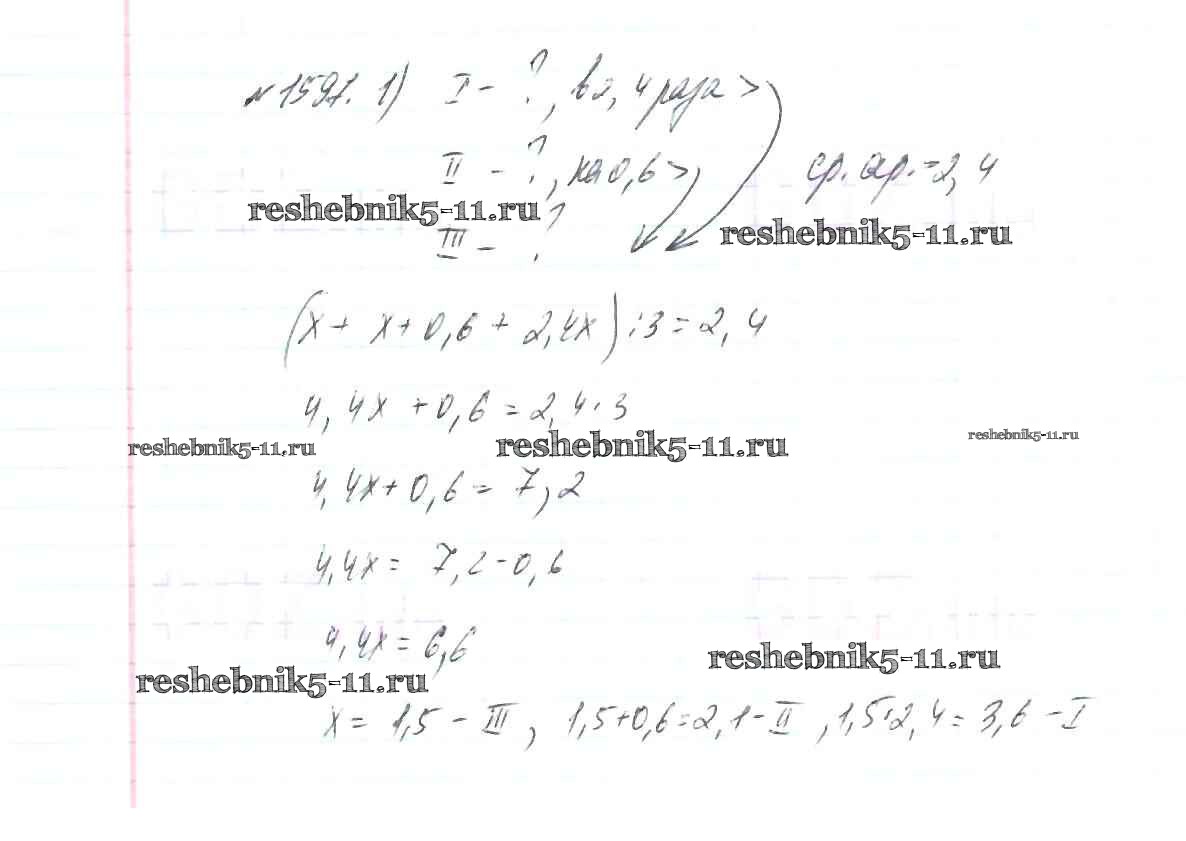 №1597. 1) I - ?, в 2,4 раза >
II - ?, на 0,6 >, ср. ар. = 2,4
reshebnik5-11.ru
III - ?
reshebnik5-11.ru
(x + x + 0,6 + 2,4x) : 3 = 2,4
4,4x + 0,6 = 2,4 · 3
reshebnik5-11.ru reshebnik5-11.ru reshebnik5-11.ru
4,4x + 0,6 = 7,2
4,4x = 7,2 - 0,6
4,4x = 6,6
reshebnik5-11.ru
reshebnik5-11.ru
x = 1,5 - III, 1,5 + 0,6 = 2,1 - II, 1,5 · 2,4 = 3,6 - I